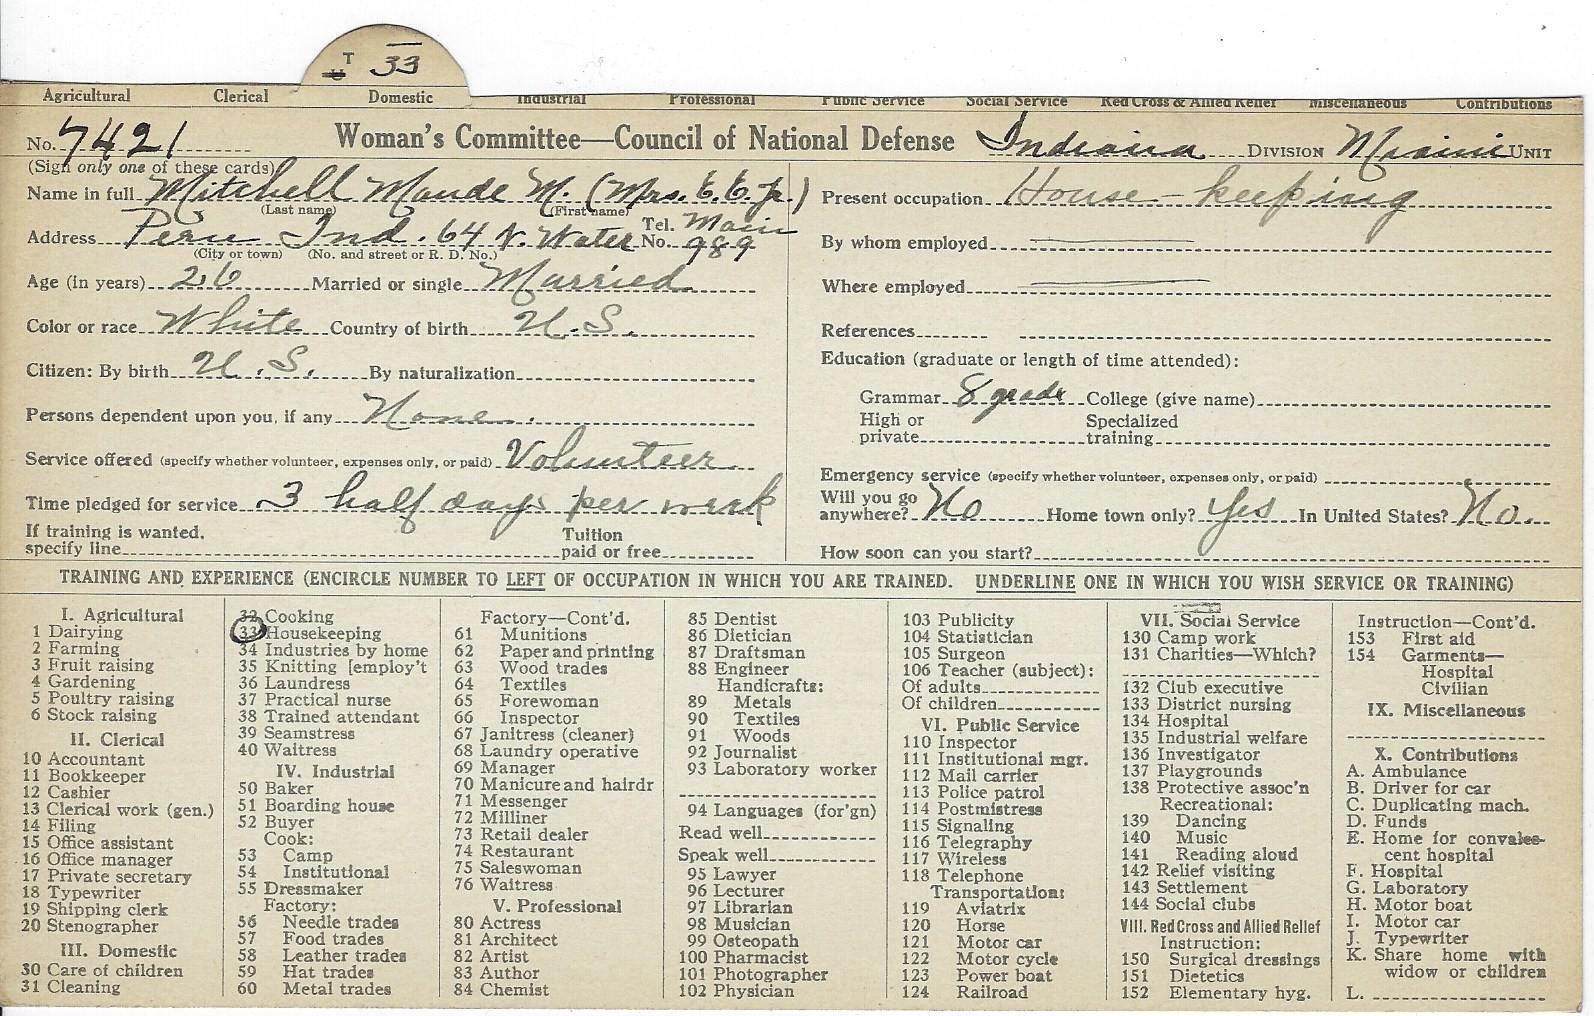 T 33
Agricultural Clerical Domestic Industrial Professional Public Service Social Service Red Cross & Allied Relief Miscellaneous Contributions
No. 7421 Woman's Committee—Council of National Defense Indiana DIVISION Miami UNIT
(Sign only one of these cards)
Name in full Mitchell Maude M. (Mrs. E. E. Jr.)
(Last name) (First name)
Address Peru Ind. 64 N. Water Tel. No. Main 989
(City or town) (No. and street or R. D. No.)
Age (in years) 26 Married or single Married
Color or race White Country of birth U.S.
Citizen: By birth U.S. By naturalization
Persons dependent upon you, if any None.
Service offered (specify whether volunteer, expenses only, or paid) Volunteer
Time pledged for service 3 half days per week
If training is wanted, specify line Tuition paid or free
Present occupation House-keeping
By whom employed
Where employed
References
Education (graduate or length of time attended):
Grammar 8 grade College (give name)
High or private Specialized training
Emergency service (specify whether volunteer, expenses only, or paid)
Will you go anywhere? No Home town only? Yes In United States? No.
How soon can you start?
TRAINING AND EXPERIENCE (ENCIRCLE NUMBER TO LEFT OF OCCUPATION IN WHICH YOU ARE TRAINED. UNDERLINE ONE IN WHICH YOU WISH SERVICE OR TRAINING)
I. Agricultural
1 Dairying
2 Farming
3 Fruit raising
4 Gardening
5 Poultry raising
6 Stock raising
II. Clerical
10 Accountant
11 Bookkeeper
12 Cashier
13 Clerical work (gen.)
14 Filing
15 Office assistant
16 Office manager
17 Private secretary
18 Typewriter
19 Shipping clerk
20 Stenographer
III. Domestic
30 Care of children
31 Cleaning
32 Cooking
33 Housekeeping
34 Industries by home
35 Knitting [employ't
36 Laundress
37 Practical nurse
38 Trained attendant
39 Seamstress
40 Waitress
IV. Industrial
50 Baker
51 Boarding house
52 Buyer
Cook:
53 Camp
54 Institutional
55 Dressmaker
Factory:
56 Needle trades
57 Food trades
58 Leather trades
59 Hat trades
60 Metal trades
Factory—Cont'd.
61 Munitions
62 Paper and printing
63 Wood trades
64 Textiles
65 Forewoman
66 Inspector
67 Janitress (cleaner)
68 Laundry operative
69 Manager
70 Manicure and hairdr
71 Messenger
72 Milliner
73 Retail dealer
74 Restaurant
75 Saleswoman
76 Waitress
V. Professional
80 Actress
81 Architect
82 Artist
83 Author
84 Chemist
85 Dentist
86 Dietician
87 Draftsman
88 Engineer
Handicrafts:
89 Metals
90 Textiles
91 Woods
92 Journalist
93 Laboratory worker
94 Languages (for'gn)
Read well
Speak well
95 Lawyer
96 Lecturer
97 Librarian
98 Musician
99 Osteopath
100 Pharmacist
101 Photographer
102 Physician
103 Publicity
104 Statistician
105 Surgeon
106 Teacher (subject):
Of adults
Of children
VI. Public Service
110 Inspector
111 Institutional mgr.
112 Mail carrier
113 Police patrol
114 Postmistress
115 Signaling
116 Telegraphy
117 Wireless
118 Telephone
Transportation:
119 Aviatrix
120 Horse
121 Motor car
122 Motor cycle
123 Power boat
124 Railroad
VII. Social Service
130 Camp work
131 Charities—Which?
132 Club executive
133 District nursing
134 Hospital
135 Industrial welfare
136 Investigator
137 Playgrounds
138 Protective assoc'n
Recreational:
139 Dancing
140 Music
141 Reading aloud
142 Relief visiting
143 Settlement
144 Social clubs
VIII. Red Cross and Allied Relief
Instruction:
150 Surgical dressings
151 Dietetics
152 Elementary hyg.
Instruction—Cont'd.
153 First aid
154 Garments—
Hospital
Civilian
IX. Miscellaneous
X. Contributions
A. Ambulance
B. Driver for car
C. Duplicating mach.
D. Funds
E. Home for convales-
cent hospital
F. Hospital
G. Laboratory
H. Motor boat
I. Motor car
J. Typewriter
K. Share home with
widow or children
L.